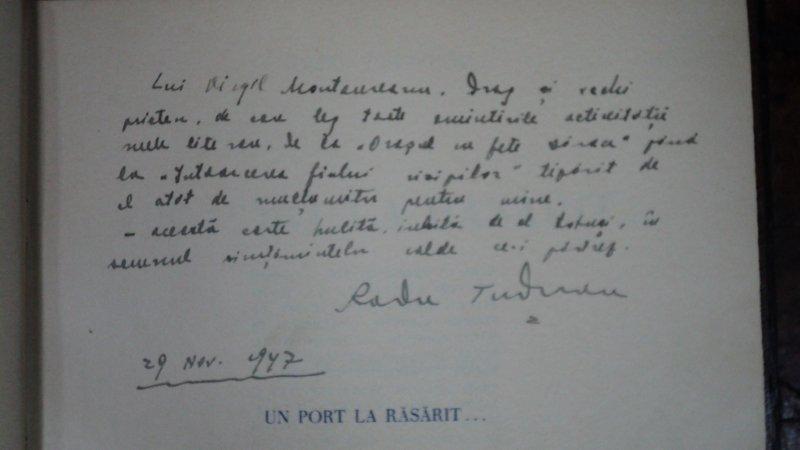 Lui Virgil Montaureanu. Drag și vechi
prieten, de care leg toate amintirile activității
mele literare, de la „Orașul cu fete sărace” până
la „Întoarcerea fiului risipitor” tipărit de
el atât de pentru mine.
– această carte iubită de el însuși, în
semnul simțămintelor calde ce-i păstrez.
Radu Tudoran
29 Nov. 1947
UN PORT LA RĂSĂRIT...